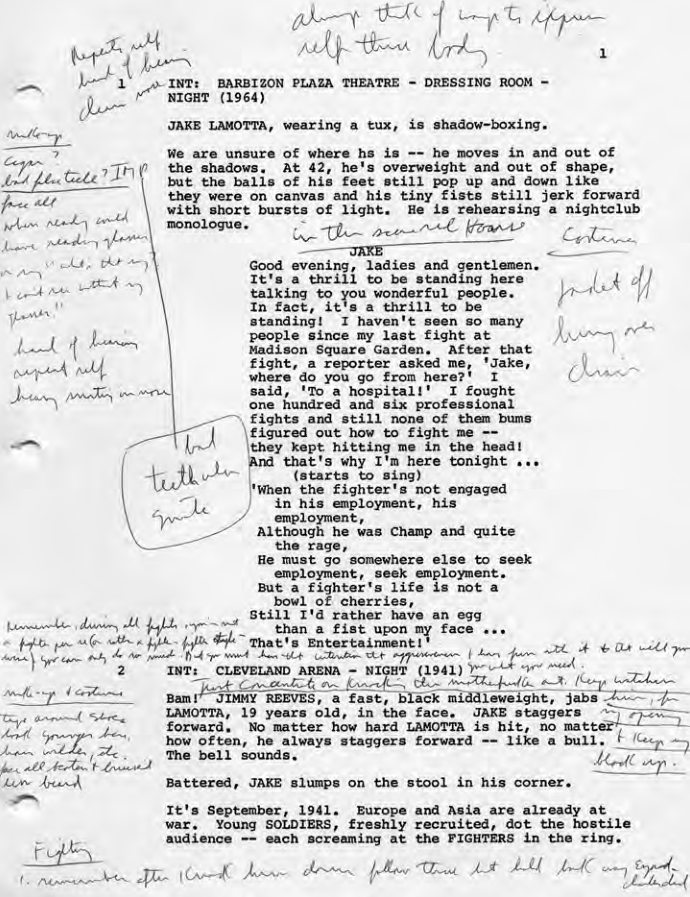 always think of ways to express
self thru body
Repeats self
hard of hearing
1
1 INT: BARBIZON PLAZA THEATRE - DRESSING ROOM -
NIGHT (1964)
JAKE LAMOTTA, wearing a tux, is shadow-boxing.
make-up
cigar?
We are unsure of where hs is -- he moves in and out of
the shadows. At 42, he's overweight and out of shape,
but the balls of his feet still pop up and down like
they were on canvas and his tiny fists still jerk forward
with short bursts of light. He is rehearsing a nightclub
monologue.
face all
when ready could
have reading glasses
glasses."
hard of hearing
repeat self
heavy on nose
in the
Costume
jacket off
hung over
chair
JAKE
Good evening, ladies and gentlemen.
It's a thrill to be standing here
talking to you wonderful people.
In fact, it's a thrill to be
standing! I haven't seen so many
people since my last fight at
Madison Square Garden. After that
fight, a reporter asked me, 'Jake,
where do you go from here?' I
said, 'To a hospital!' I fought
one hundred and six professional
fights and still none of them bums
figured out how to fight me --
they kept hitting me in the head!
And that's why I'm here tonight ...
(starts to sing)
'When the fighter's not engaged
in his employment, his
employment,
Although he was Champ and quite
the rage,
He must go somewhere else to seek
employment, seek employment.
But a fighter's life is not a
bowl of cherries,
Still I'd rather have an egg
than a fist upon my face ...
That's Entertainment!'
bad
teeth
remember, during all fights
2 INT: CLEVELAND ARENA - NIGHT (1941)
Just concentrate on knocking this motherfucker out. Keep
make-up & costume
tape around shoes
look younger here,
hair wilder, etc.
Bam! JIMMY REEVES, a fast, black middleweight, jabs
LAMOTTA, 19 years old, in the face. JAKE staggers
forward. No matter how hard LAMOTTA is hit, no matter
how often, he always staggers forward -- like a bull.
The bell sounds.
my opening
& keep my
block up.
Battered, JAKE slumps on the stool in his corner.
It's September, 1941. Europe and Asia are already at
war. Young SOLDIERS, freshly recruited, dot the hostile
audience -- each screaming at the FIGHTERS in the ring.
Fighting
1. remember after I knock him down follow thru but held back